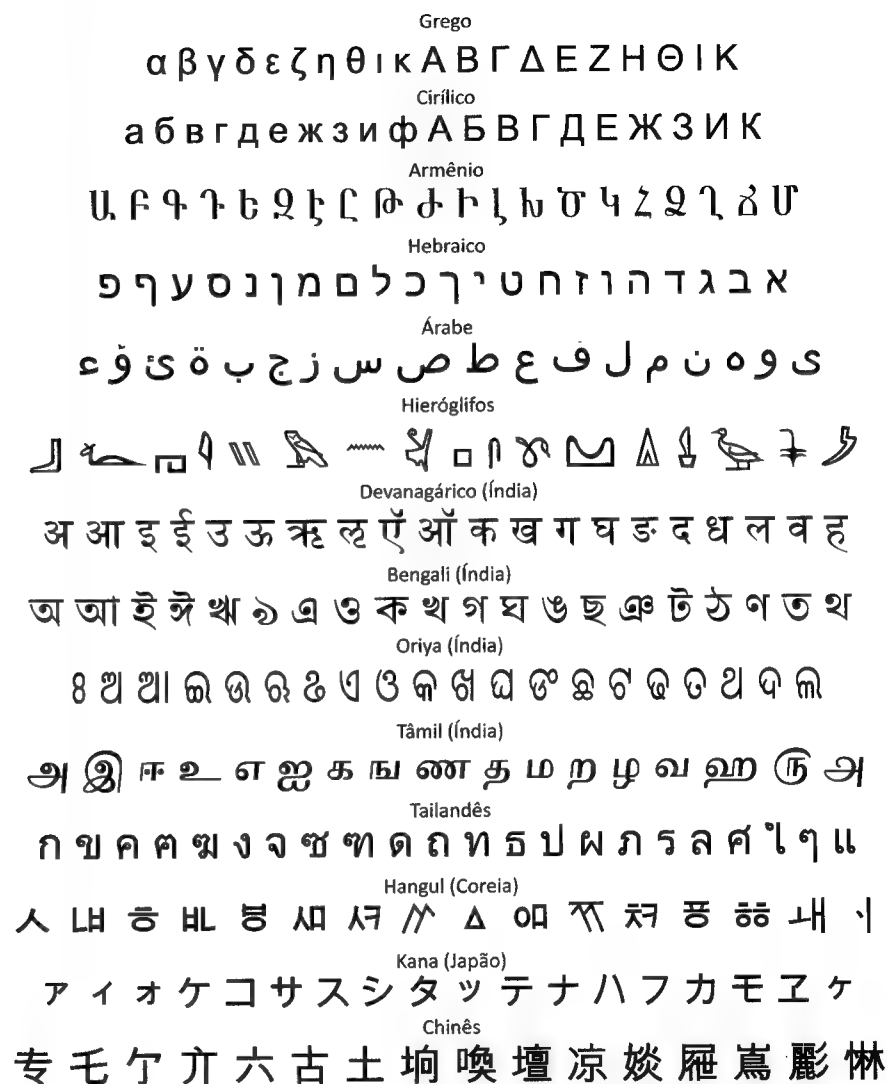 Grego
α β γ δ ε ζ η θ ι κ Α Β Γ Δ Ε Ζ Η Θ Ι Κ
Cirílico
а б в г д е ж з и ф А Б В Г Д Е Ж З И К
Armênio
Ա Բ Գ Դ Ե Զ Է Ը Թ Ժ Ի Լ Խ Ծ Կ Հ Ձ Ղ Ճ Մ
Hebraico
א ב ג ד ה ו ז ח ט י ך כ ל ם מ ן נ ס ע ף פ
Árabe
ى و ه ن م ل ف ع ط ص س ز ج ب ة ئ ؤ ء
Hieróglifos
Devanagárico (Índia)
अ आ इ ई उ ऊ ऋ ऌ ऍ ऑ क ख ग घ ङ द ध ल व ह
Bengali (Índia)
অ আ ই ঈ ঋ ঌ এ ও ক খ গ ঘ ঙ ছ ঞ ট ঠ ণ ত থ
Oriya (Índia)
ଃ ଅ ଆ ଇ ଉ ଋ ଌ ଏ ଓ କ ଖ ଘ ଙ ଛ ଟ ଢ ତ ଥ ଦ ଲ
Tâmil (Índia)
அ இ ஈ உ எ ஐ க ங ண த ம ற ழ வ ஹ அ
Tailandês
ก ข ค ฅ ฆ ง จ ซ ฑ ด ถ ท ธ ป ผ ภ ร ล ศ ๆ แ
Hangul (Coreia)
ㅅ ㅎ ㅿ
Kana (Japão)
ァ ィ ォ ケ コ サ ス シ タ ッ テ ナ ハ フ カ モ ヱ ヶ
Chinês
专 乇 亇 六 古 土 垧 喚 壇 凉 婒 嵩 惏